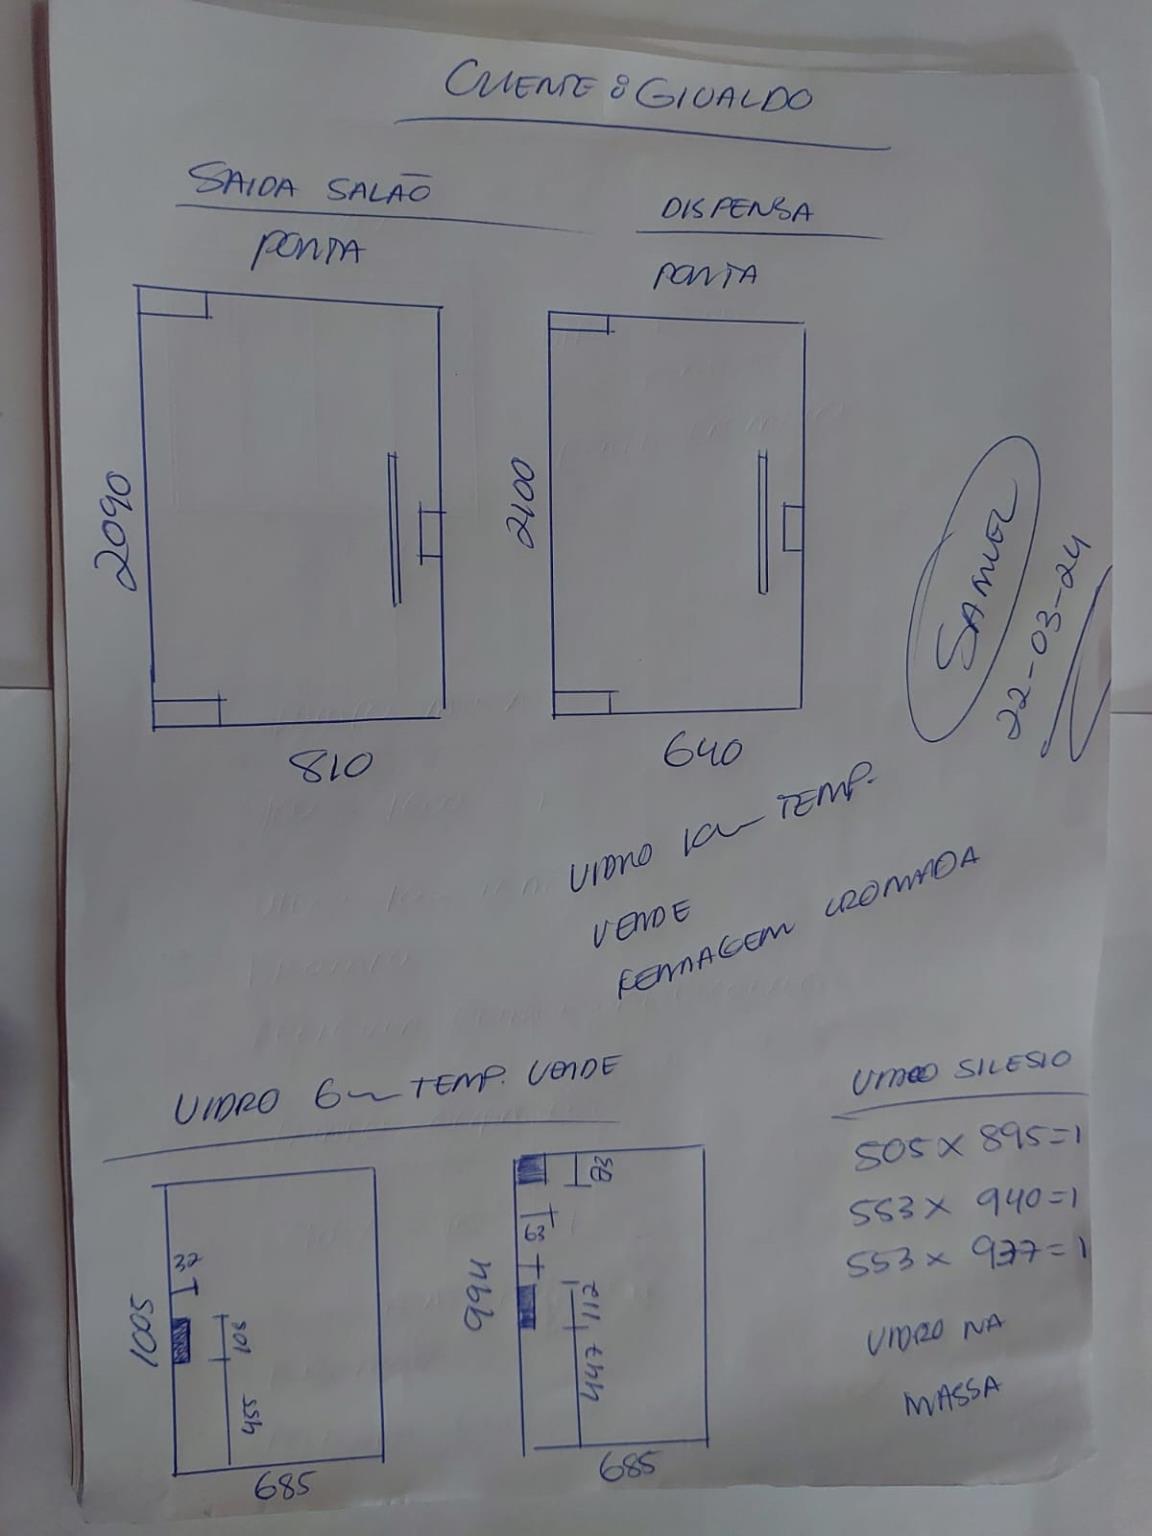 CLIENTE: GIVALDO
SAIDA SALÃO
PORTA
DISPENSA
PORTA
2090
810
2100
640
SAMUEL
22-03-24
VIDRO 10m TEMP.
VERDE
FERRAGEM CROMADA
VIDRO 6m TEMP. VERDE
1005
32
108
455
685
994
83
63
112
447
685
VIDRO SILESIO
505 X 895=1
553 X 940=1
553 X 937=1
VIDRO NA
MASSA